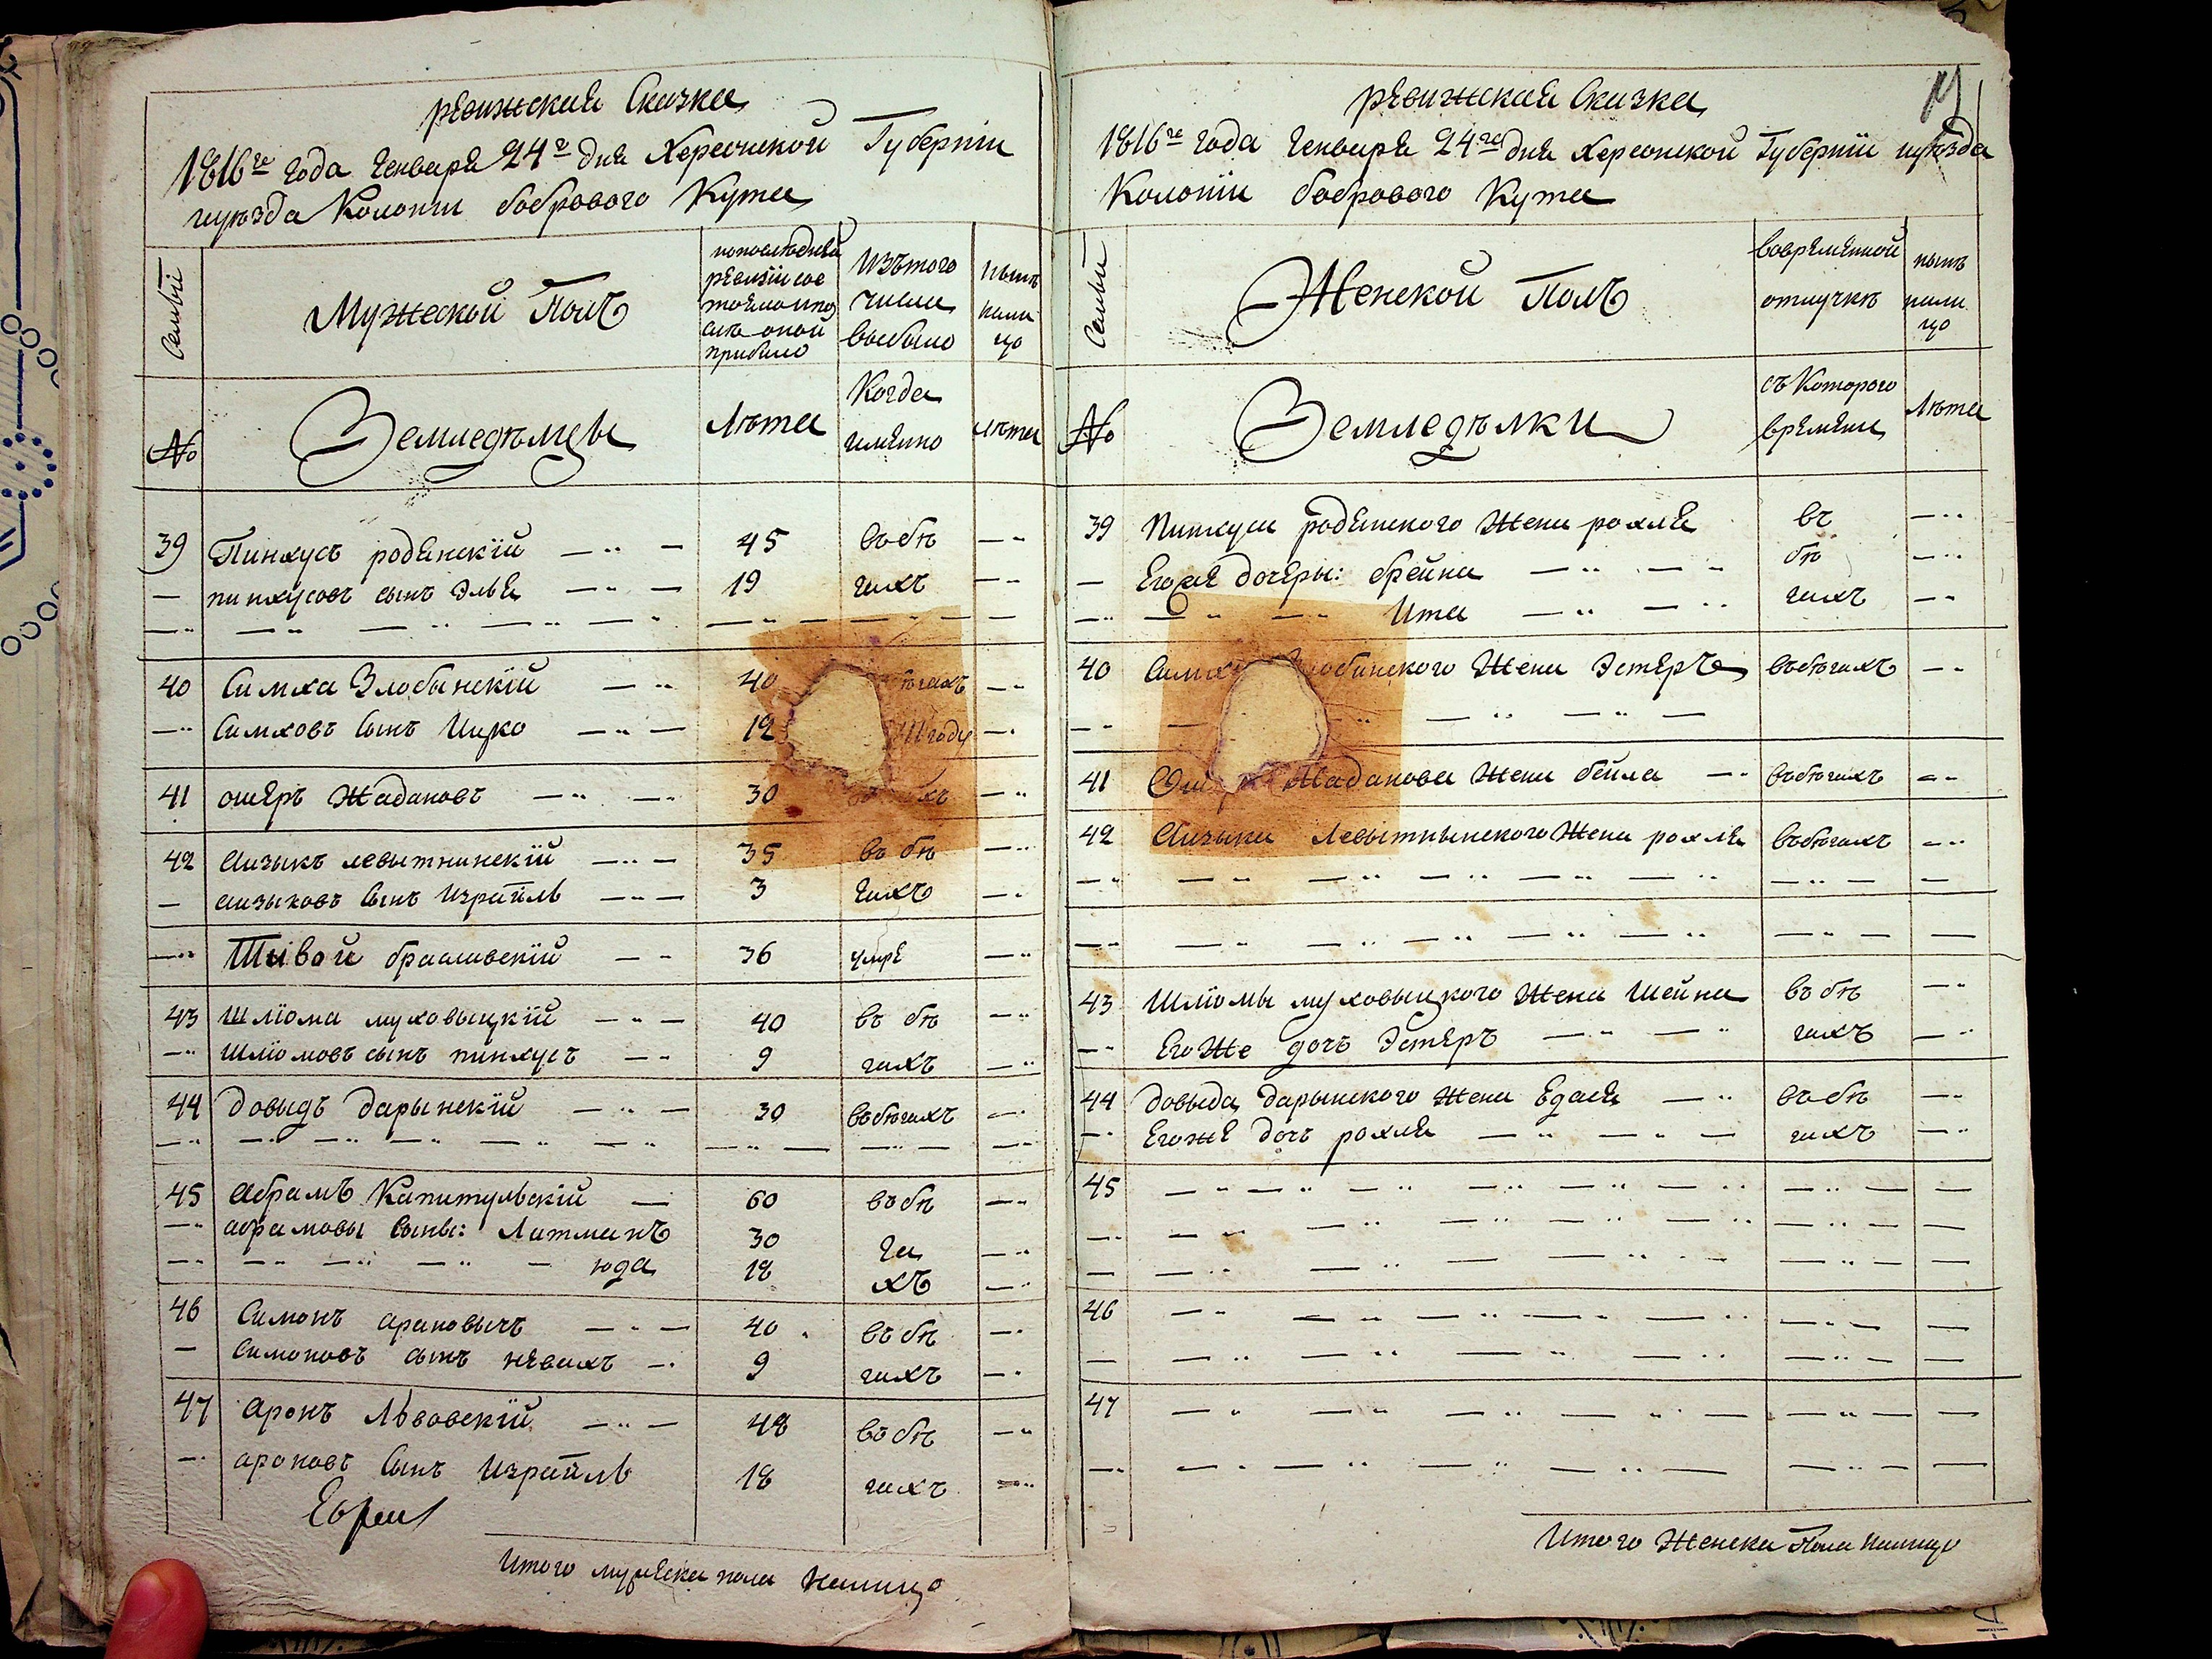 ревижская Сказка
1816го года Генваря 24го дня Херсонской Губернии
и уезда Колонии бобрового Кута
Семьи
Мужеской Полъ
попоследней ревизии сое тояло ипо сле оной прибыло
Изътого числа выбыло
ныне нали цо
№
Земледѣльцы
Лѣта
Когда имянно
лѣта
39 Пинхусъ родЕнскій 45 въ бѣ
— пинхусовъ сынъ ЭльЕ 19 гахъ
40 Симха Злобынскій 40 бѣгахъ
Симховъ Сынъ Ицко 12 году
41 ошеръ Жадановъ 30 хъ
42 Аизыкъ левытнинскій 35 въ бѣ
— аизыковъ Сынъ Израйль 3 гахъ
Шивой браславскій 36 умре
43 Шліома муховыцкій 40 въ бѣ
Шліомовъ сынъ пинхусъ 9 гахъ
44 довыдъ дарынскій 30 въ бѣгахъ
45 Абрамъ Капитульскій 60 въ бѣ
абрамовы Сыны: Литманъ 30 га
юда 18 хъ
46 Симонъ ароновычъ 40 въ бѣ
— Симоновъ сынъ невахъ 9 гахъ
47 аронъ Львовскій 48 въ бѣ
ароновъ Сынъ Израйль 18 гахъ
Итого мужеска пола Налицо
ревижская Сказка
1816го года Генваря 24го дня Херсонской Губерніи и уѣзда
Колоніи бобрового Кута
Семьи
Женской Полъ
вовременной отлучкѣ
нынѣ нали цо
№
Земледѣлки
съ Которого времяни
Лѣта
39 Пинхуса роденского Жена рохля въ
— Егоже дочеры: брейна бѣ
Ита гахъ
40 Симх обинского Жена Эстеръ въ бѣгахъ
41 Ош Жаданова Жена бейла въ бѣгахъ
42 Аизыка Левытнынского Жена рохля въ бѣгахъ
43 Шліомы муховыцкого Жена Шейна въ бѣ
ЕгоЖе дочъ Эстеръ гахъ
44 довыда дарынского Жена Едася въ бѣ
Егоже дочъ рохля гахъ
45
46
47
Итого Женска Пола Налицо